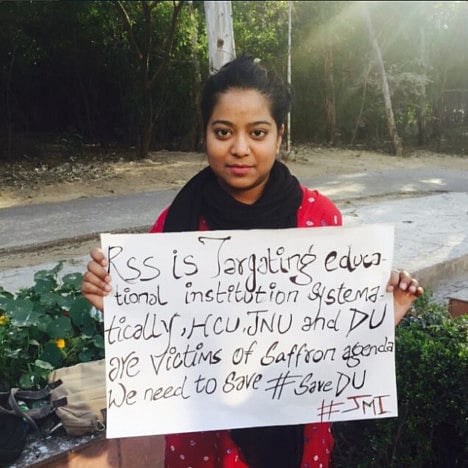 RSS is Targating educa-
tional institution systema-
tically, HCU, JNU and DU
are victims of Saffron agenda
We need to save #SaveDU
#JMI